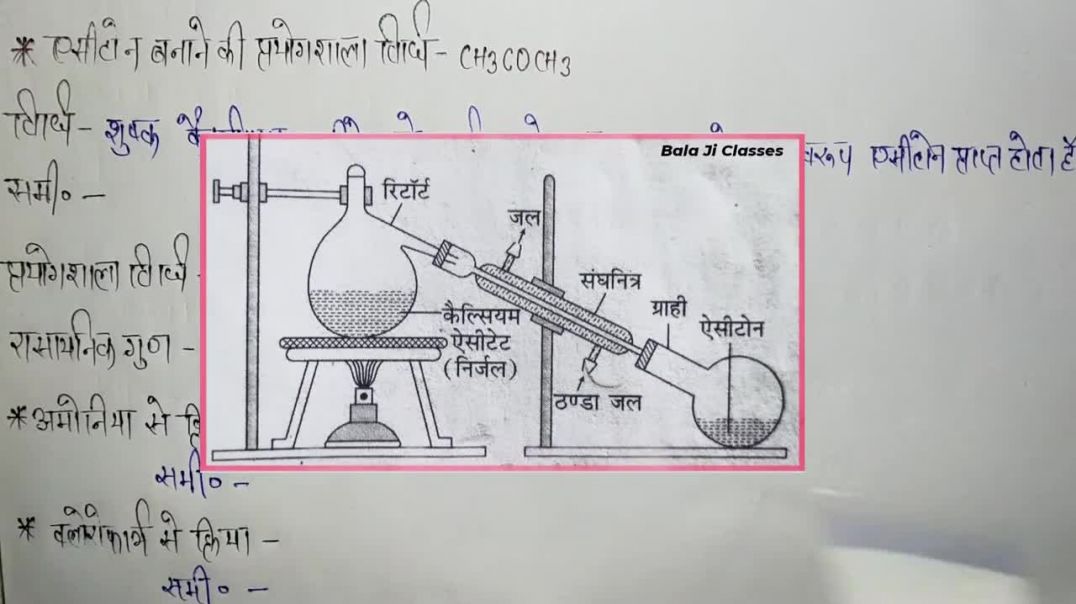 * एसीटोन बनाने की प्रयोगशाला विधि - CH3COCH3
विधि - शुष्क
स्वरूप एसीटोन प्राप्त होता है
समी० -
प्रयोगशाला विधि -
रासायनिक गुण -
* अमोनिया से
समी० -
* क्लोरोफार्म से क्रिया -
समी० -
Bala Ji Classes
रिटॉर्ट
जल
संघनित्र
ग्राही
ऐसीटोन
कैल्सियम
ऐसीटेट
(निर्जल)
ठण्डा जल